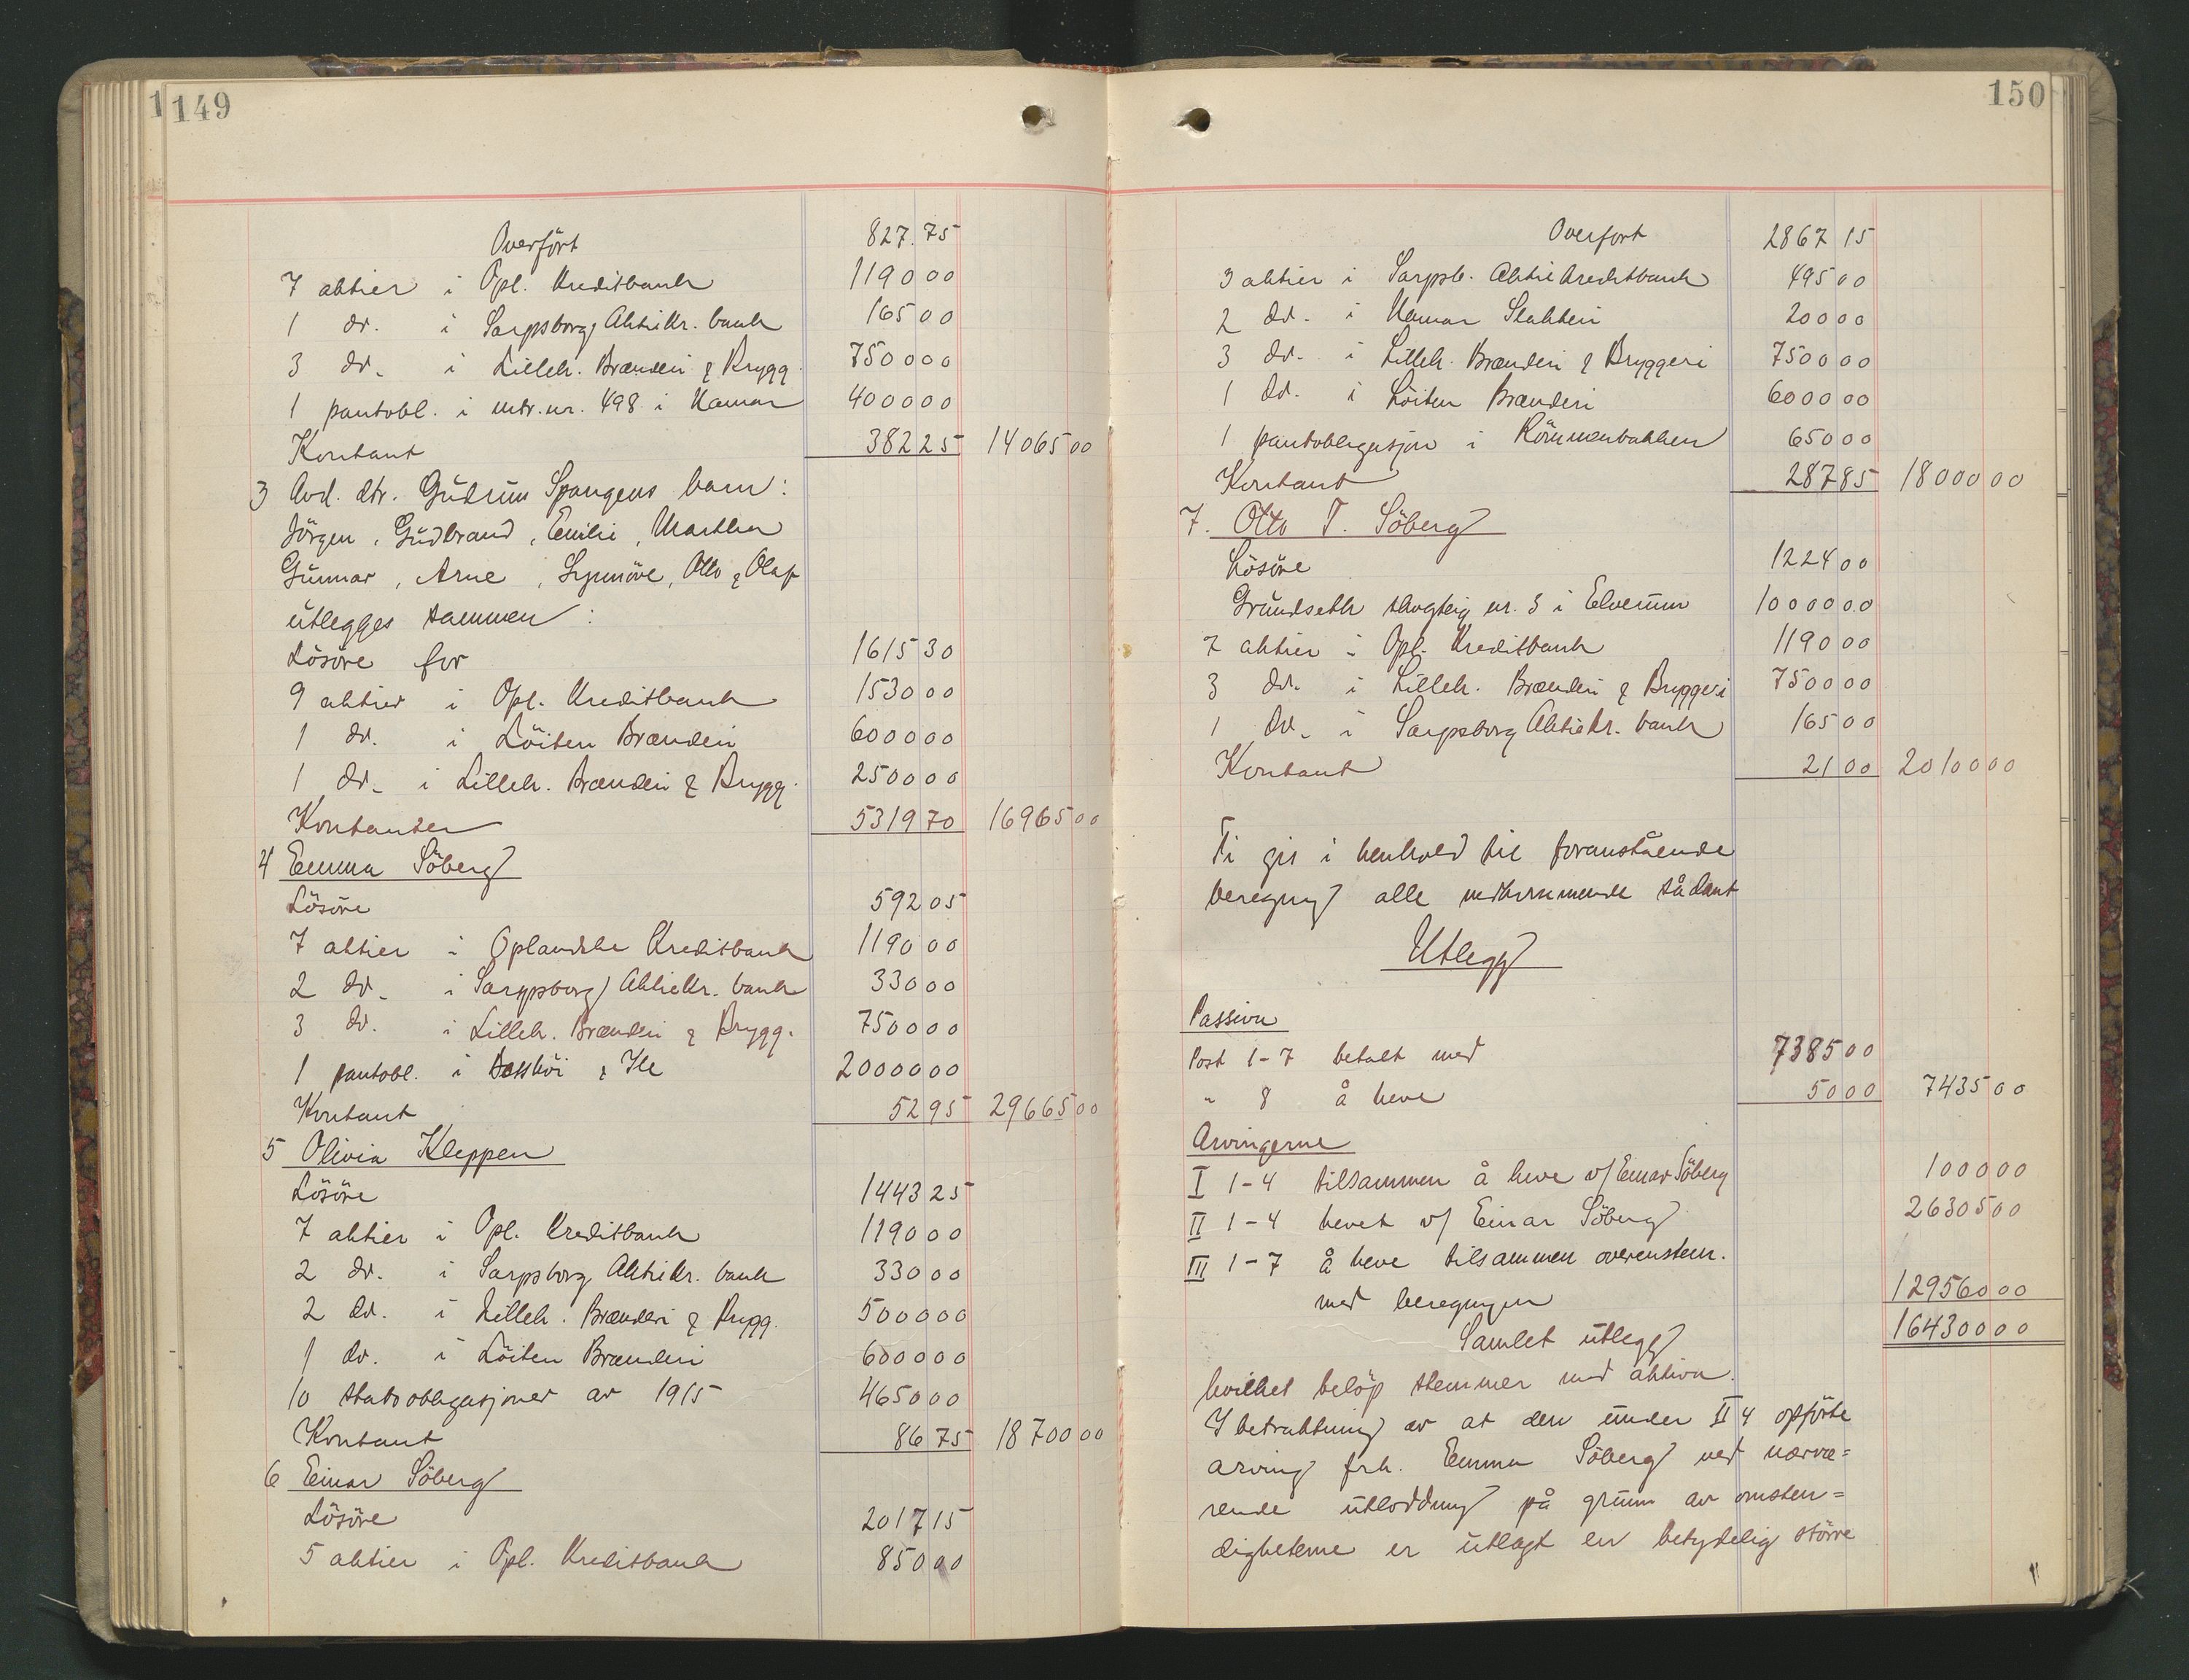 149
Overført 827.75
7 aktier i Opl. Kreditbank 1190 00
1 do. i Sarpsborg Aktiekr. bank 165 00
3 do. i Lilleh. Brænderi & Brygg. 7500 00
1 pantobl. i mtr. nr. 498 i Hamar 4000 00
Kontant 382 25 14065 00
3 Avd. dtr. Gudrun Spangens barn:
Jörgen, Gudbrand, Emilie, Marthea
Gunnar, Arne, Synnöve, Otto & Olaf
utlegges sammen:
Lösöre for 1615 30
9 aktier i Opl. Kreditbank 1530 00
1 do. i Löiten Brænderi 6000 00
1 do. i Lilleh. Brænderi & Brygg. 2500 00
Kontanter 5319 70 16965 00
4 Emma Söberg
Lösöre 592 05
7 aktier i Oplandske Kreditbank 1190 00
2 do. i Sarpsborg Aktiekr. bank 330 00
3 do. i Lilleh. Brænderi & Brygg. 7500 00
1 pantobl. i & Ile 20000 00
Kontant 52 95 29665 00
5 Olivia Kleppen
Lösöre 1443 25
7 aktier i Opl. Kreditbank 1190 00
2 do. i Sarpsborg Aktiekr. bank 330 00
2 do. i Lilleh. Brænderi & Brygg. 5000 00
1 do. i Löiten Brænderi 6000 00
10 statsobligasjoner av 1915 4650 00
Kontant 86 75 18700 00
6 Einar Söberg
Lösöre 2017 15
5 aktier i Opl. Kreditbank 850 00
150
Overfört 2867 15
3 aktier i Sarpsb. Aktiekreditbank 495 00
2 do. i Hamar Slakteri 200 00
3 do. i Lilleh. Brænderi & Bryggeri 7500 00
1 do. i Löiten Brænderi 6000 00
1 pantobligasjon i 650 00
Kontant 287 85 18000 00
7. Otto T. Söberg
Lösöre 1224 00
Grundseth skogteig nr. 3 i Elverum 10000 00
7 aktier i Opl. Kreditbank 1190 00
3 do. i Lilleh. Brænderi & Bryggeri 7500 00
1 do. i Sarpsborg Aktiekr. bank 165 00
Kontant 21 00 20100 00
Ti gis i henhold til foranstående
beregning alle vedkommende sådant
Utlegg
Passiva
Post 1-7 betalt med 7385 00
" 8 å heve 50 00 7435 00
Arvingerne
I 1-4 tilsammen å heve v/ Einar Söberg 1000 00
II 1-4 hevet v/ Einar Söberg 26305 00
III 1-7 å heve tilsammen overenstem.
med beregningen 129560 00
Samlet utlegg 164300 00
hvilket belöp stemmer med aktiva.
I betraktning av at den under II 4 opförte
arving frk. Emma Söberg ved nærvæ=
rende utlodding på grunn av omsten=
dighetene er utlagt en betydelig större